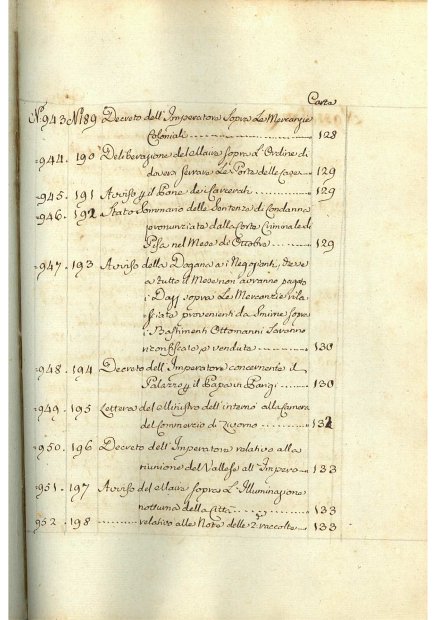 Carta
N.° 943 N.° 189 Decreto dell'Imperatore sopra Le Mercanzie
Coloniali 128
944. 190 Deliberazione del Maire sopra L'Ordine di
doversi serrare Le Porte delle Case 129
945. 191 Avviso p il Pane de i Carcerati 129
946. 192 Stato Sommario delle Sentenze di Condanna
pronunziate dalla Corte Criminale di
Pisa nel Mese di Ottobre 129
947. 193 Avviso della Dogana a i Negozianti, che se
a tutto il Mese non avranno pagato
i Dazj sopra Le Mercanzie rila
sciate provenienti da Smirne sopra
i Bastimenti Ottomanni saranno
riconfiscate e vendute 130
948. 194 Decreto dell'Imperatore concernente il
Palazzo p il Papa in Parigi 130
949. 195 Lettera del Ministro dell'interno alla Camera
del Commercio di Livorno 132
950. 196 Decreto dell'Imperatore relativo alla
riunione del Vallese all'Impero 133
951. 197 Avviso del Maire sopra L'Illuminazione
notturna della Città 133
952. 198 relativo alle Note delle raccolte 133